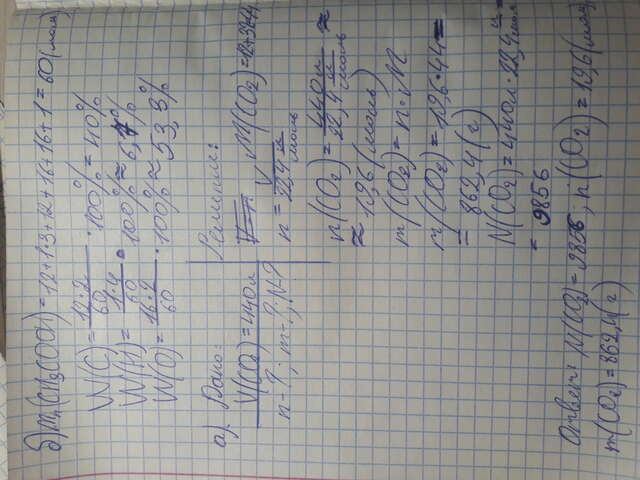 б) Mr(CH3COOH) = 12+1·3+12+16+16+1=60(моль)
W(C) = 12·2/60 · 100% = 40%
W(H) = 1·4/60 · 100% ≈ 6,7%
W(O) = 16·2/60 · 100% ≈ 53,3%
а). Дано:
V(CO2)=440л
n-?; m-?; N-?
Решение:
n = V/22,4 л/моль M(CO2)=12+32=44
n(CO2) = 440л/22,4 л/моль ≈
≈ 19,6 (моль)
m(CO2) = n·M
m(CO2) = 19,6·44=
= 862,4(г)
N(CO2)=440л·22,4 л/моль =
= 9856
Ответ: N(CO2)=9856; n(CO2)=19,6(моль)
m(CO2)=862,4(г)